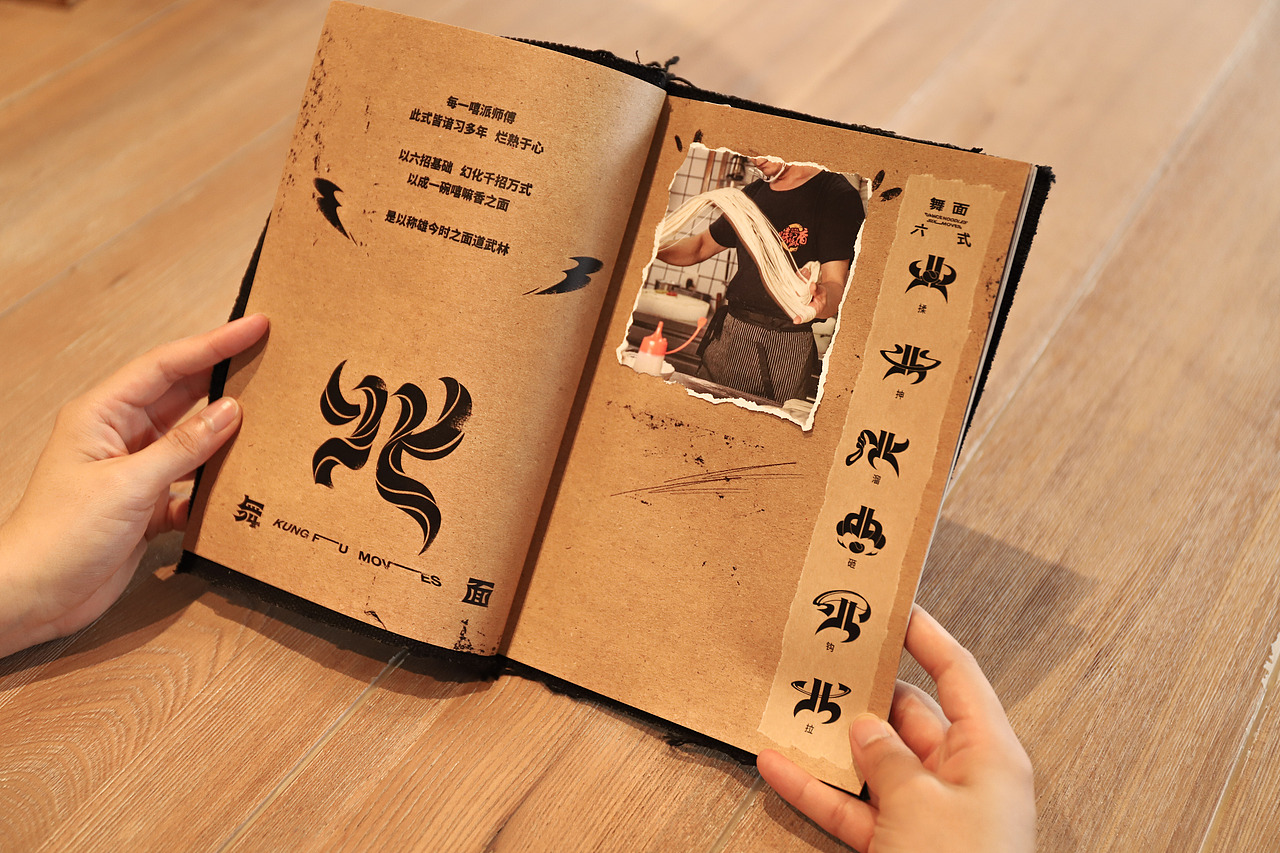 每一嘻派师傅
此式皆谙习多年 烂熟于心
以六招基础 幻化千招万式
以成一碗嘻嘛香之面
是以称雄今时之面道武林
舞 KUNG FU MOVES 面
舞面
DANCE NOODLES
SIX MOVES
六式
揉
抻
溜
砸
钩
拉